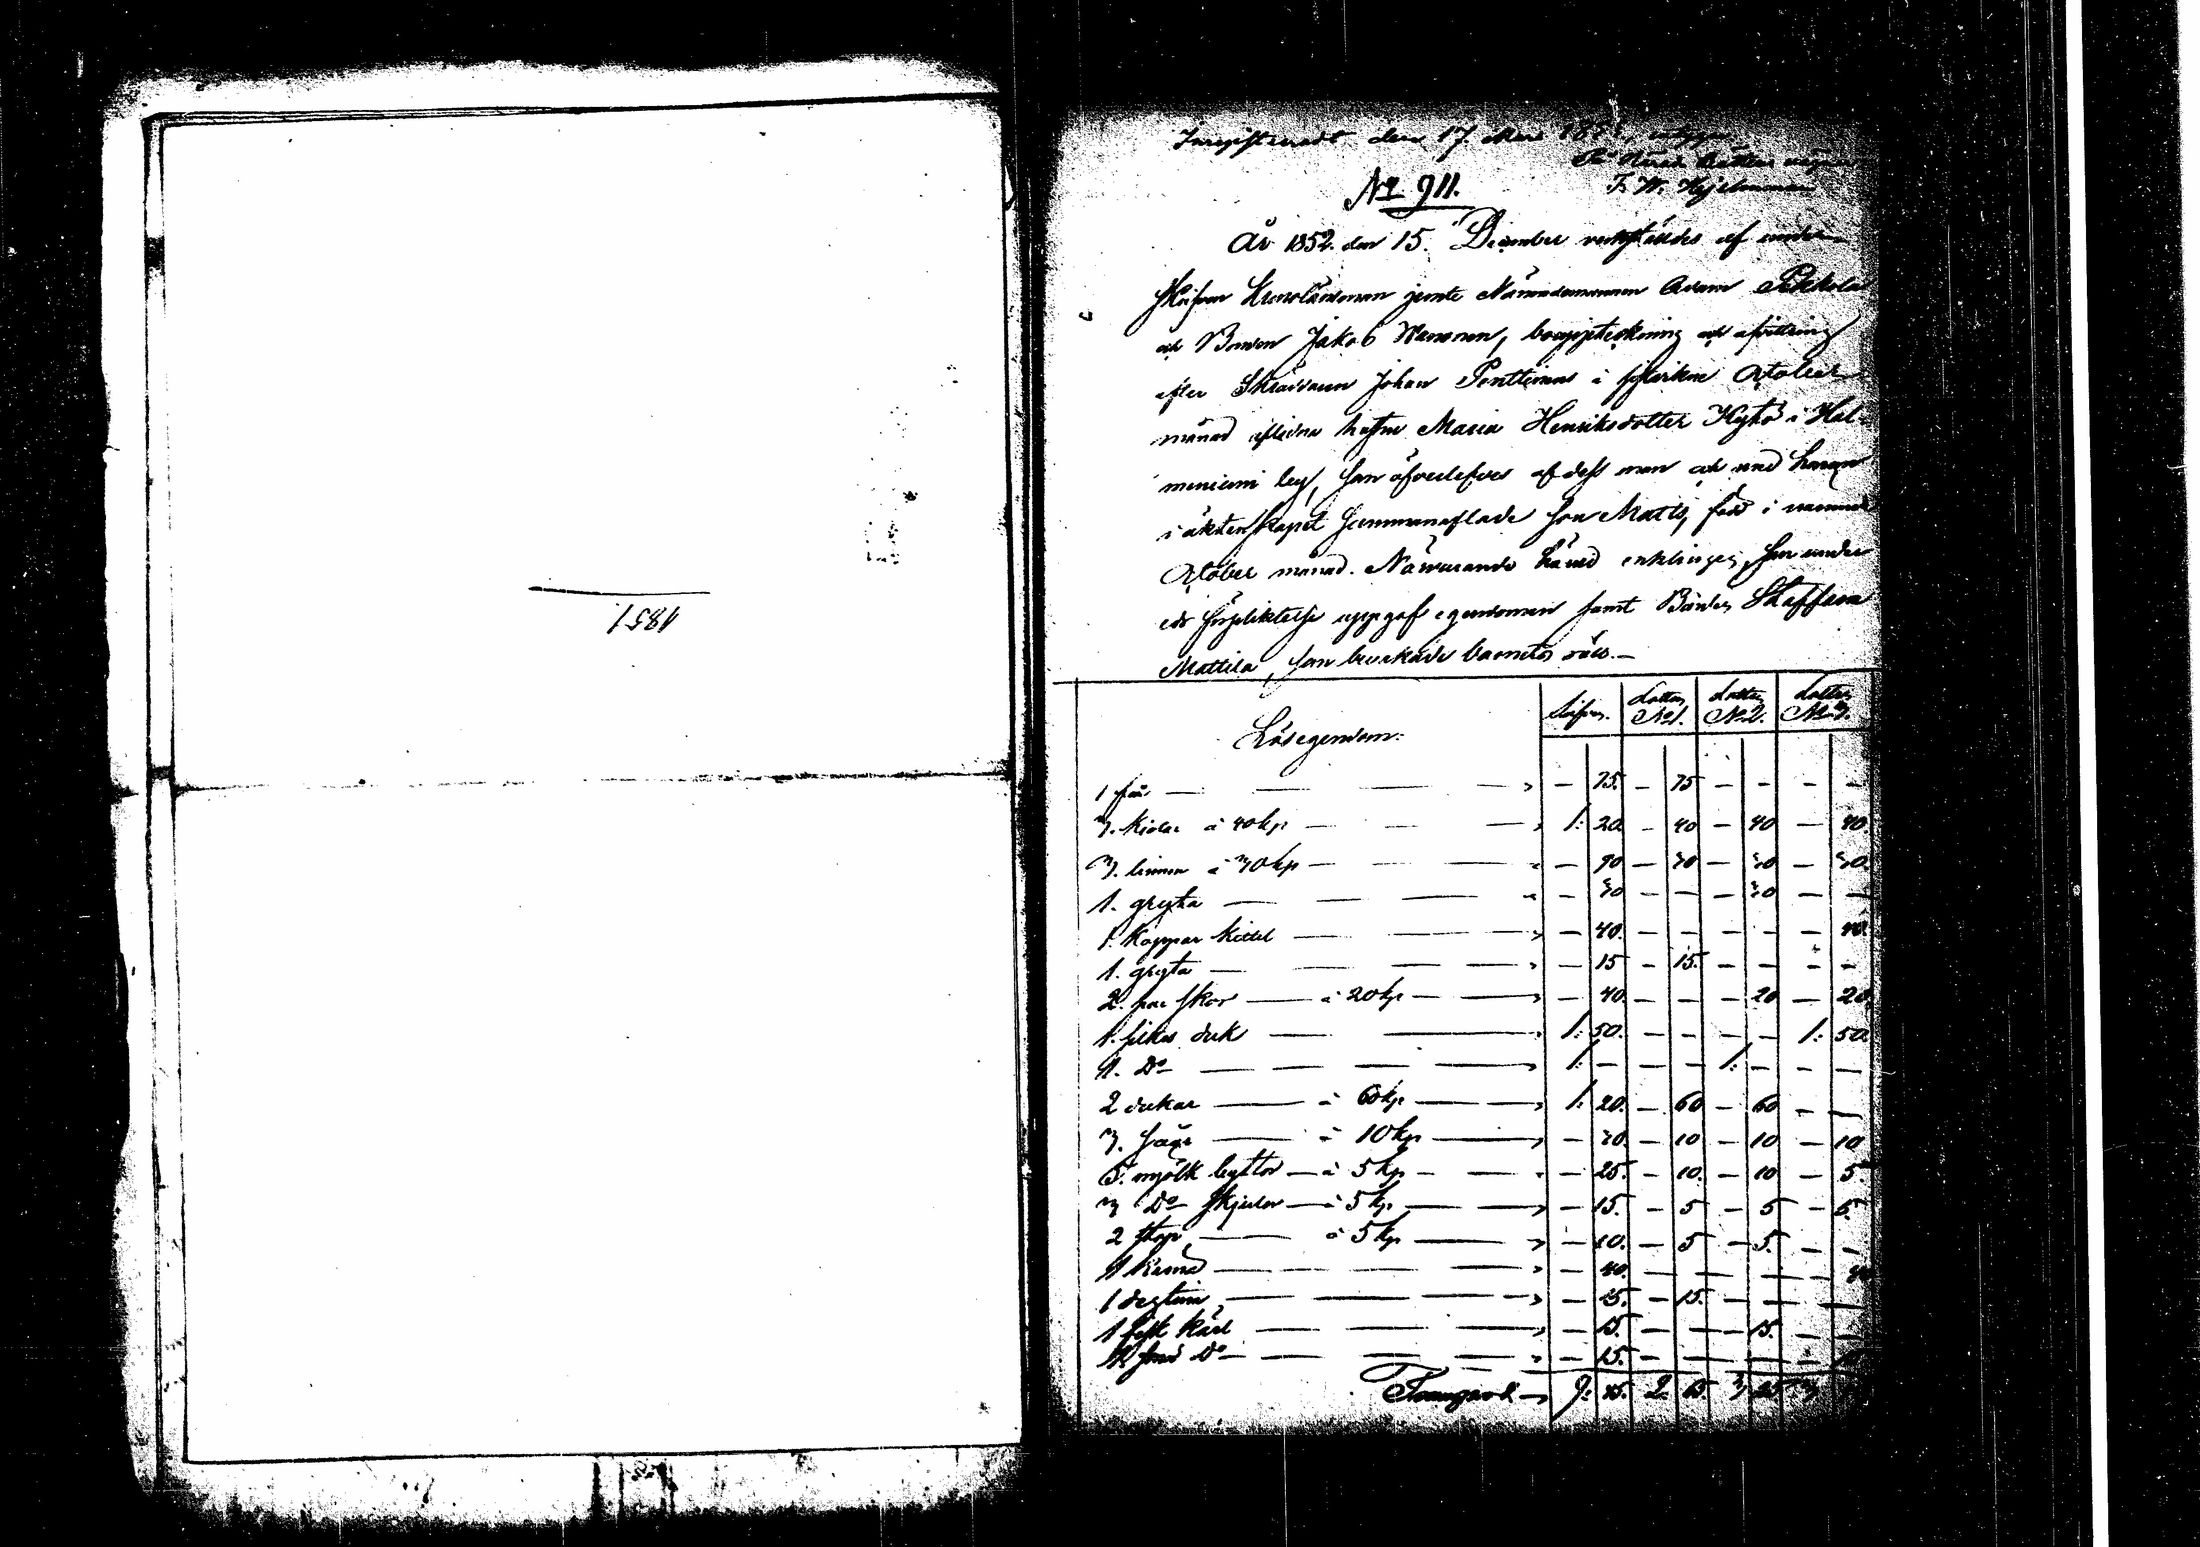 1851
Inregistreradt den 17. Mai 1853, intygar
På Härads Rättens vägnar
F. W. Hjelmman
No 911.
År 1852 den 15. December verkstäldes af under-
skrifven Kronolänsman jemte Nämndemannen Adam Pekkola
och Bonden Jakob Wanonen, bouppteckning och afvittring
efter Skräddaren Johan Penttinens i sistlidne October
månad aflidna hustru Maria Henriksdotter Hyttö i Hal-
meniemi by, som öfverlefves af dess man och med honom
i äktenskapet sammanaflade son Matts, född i nämnde
October månad. Närvarande härvid enklingen, som under
ed förpliktelse uppgaf egendomen samt Bonden Staffan
Mattila, som bevakade barnets rätt.—
Lösegendom: Lottn No 1. Lotten No 2. Lotten No 3.
1 får — — 75. — 75 — — — —
3. kiolar á 40 kp — 1: 20. — 40 — 40 — 40.
3. linnen á 30 kp — — 90 — 30 — 30 — 30.
1. gryta — — 30 — — — 30 — —
1. Koppar kittel — — 40. — — — — — 40.
1. gryta — — 15 — 15. — — — —
2. par skor — á 20 kp — — 40. — — — 20 — 20.
1. silkes duk — 1: 50. — — — — 1: 50.
1. Do — 1: — — — 1: — — —
2 dukar — á 60 kp — 1: 20. — 60 — 60 — —
3. — á 10 kp — — 30. — 10 — 10 — 10
5. mjölk byttor — á 5 kp — — 25. — 10. — 10 — 5.
3 Do skjulor — á 5 kp. — — 15. — 5 — 5 — 5.
2 stop — á 5 kp — — 10. — 5 — 5. — —
1 — — 40. — — — — — 40
1 degtina — — 15. — 15. — — — —
1 fisk kärl — — 15. — — — 15. — —
1 Do — — 15. — — — — —
Transport — 9: 45. 2. 65. 3 25 3